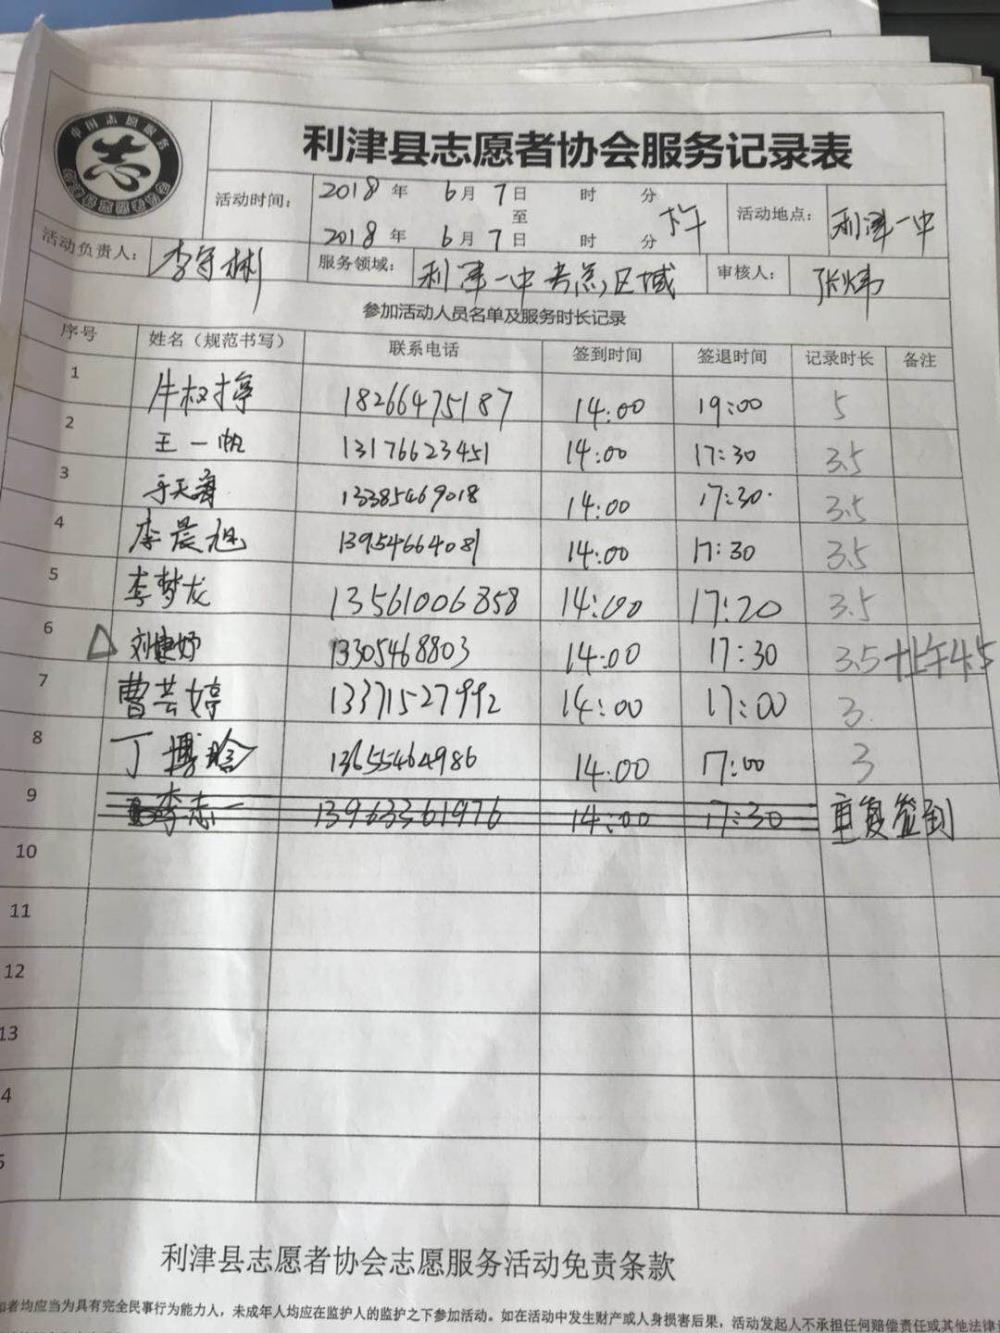 中国志愿服务
志
利津县志愿者协会服务记录表
活动时间： 2018 年 6 月 7 日 时 分
至
2018 年 6 月 7 日 时 分
活动地点： 利津一中
活动负责人： 李守彬 服务领域： 利津一中考点区域 审核人： 张炜
参加活动人员名单及服务时长记录
序号 姓名（规范书写） 联系电话 签到时间 签退时间 记录时长 备注
1 牛权婷 18266475187 14:00 19:00 5
2 王一帆 13176623451 14:00 17:30 3.5
3 于天海 13385469018 14:00 17:30 3.5
4 李晨旭 13954664081 14:00 17:30 3.5
5 李梦龙 13561006858 14:00 17:20 3.5
6 △ 刘婕妤 13305468803 14:00 17:30 3.5 上午4.5
7 曹芸婷 13371527992 14:00 17:00 3
8 丁博晗 13655464986 14:00 17:00 3
9 李志一 13963361976 14:00 17:30 重复签到
10
11
12
13
4
5
利津县志愿者协会志愿服务活动免责条款
者均应当为具有完全民事行为能力人，未成年人均应在监护人的监护之下参加活动。如在活动中发生财产或人身损害后果，活动发起人不承担任何赔偿责任或其他法律